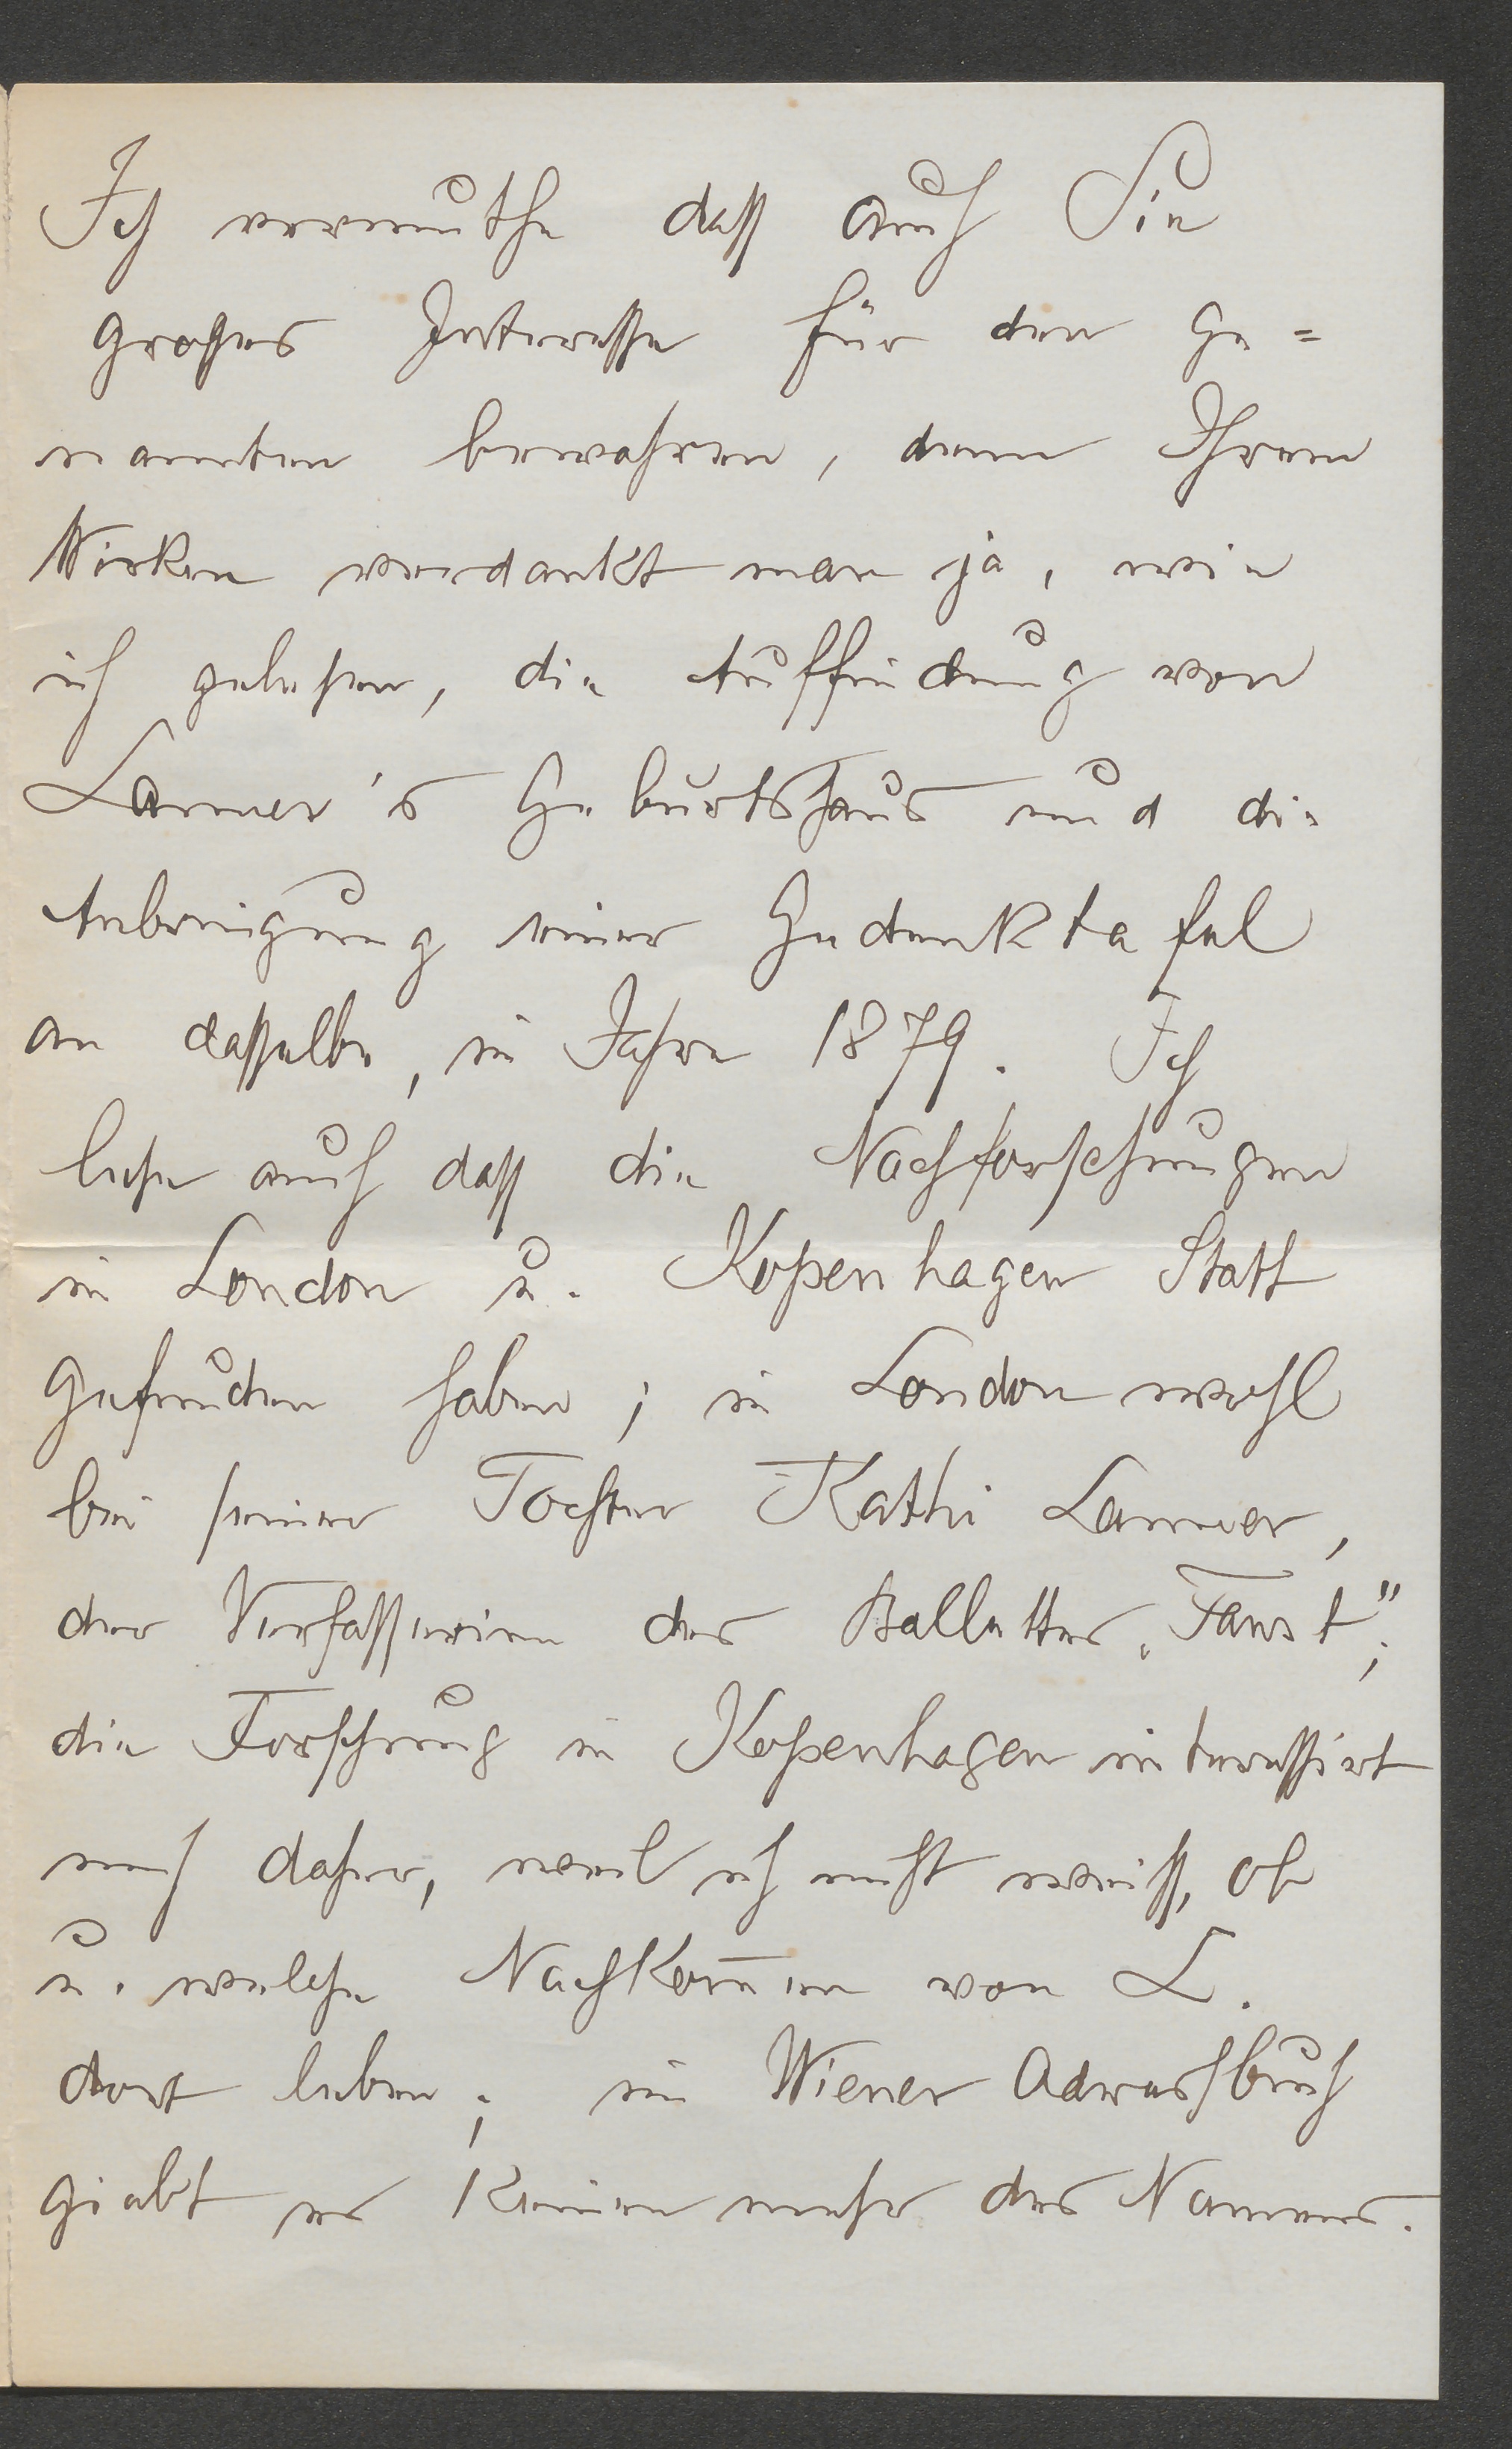 Ich vermuthe dass auch Sie
grosses Interesse für den Ge=
nannten bewahren, denn Ihrem
Wirken verdankt man ja, wie
ich gelesen, die Auffindung von
Lanner's Geburtshaus und die
Anbringung einer Gedenktafel
an dasselbe, im Jahre 1879. Ich
lese auch dass die Nachforschungen
in London u. Kopenhagen Statt
gefunden haben; in London wohl
bei seiner Tochter Kathi Lanner,
der Verfasserin des Ballettes „Faust";
die Forschung in Kopenhagen interessirt
mich daher, weil ich nicht weiss, ob
u. welche Nachkom̅en von L.
dort leben; im Wiener Adressbuch
giebt es Keinen mehr des Namens.